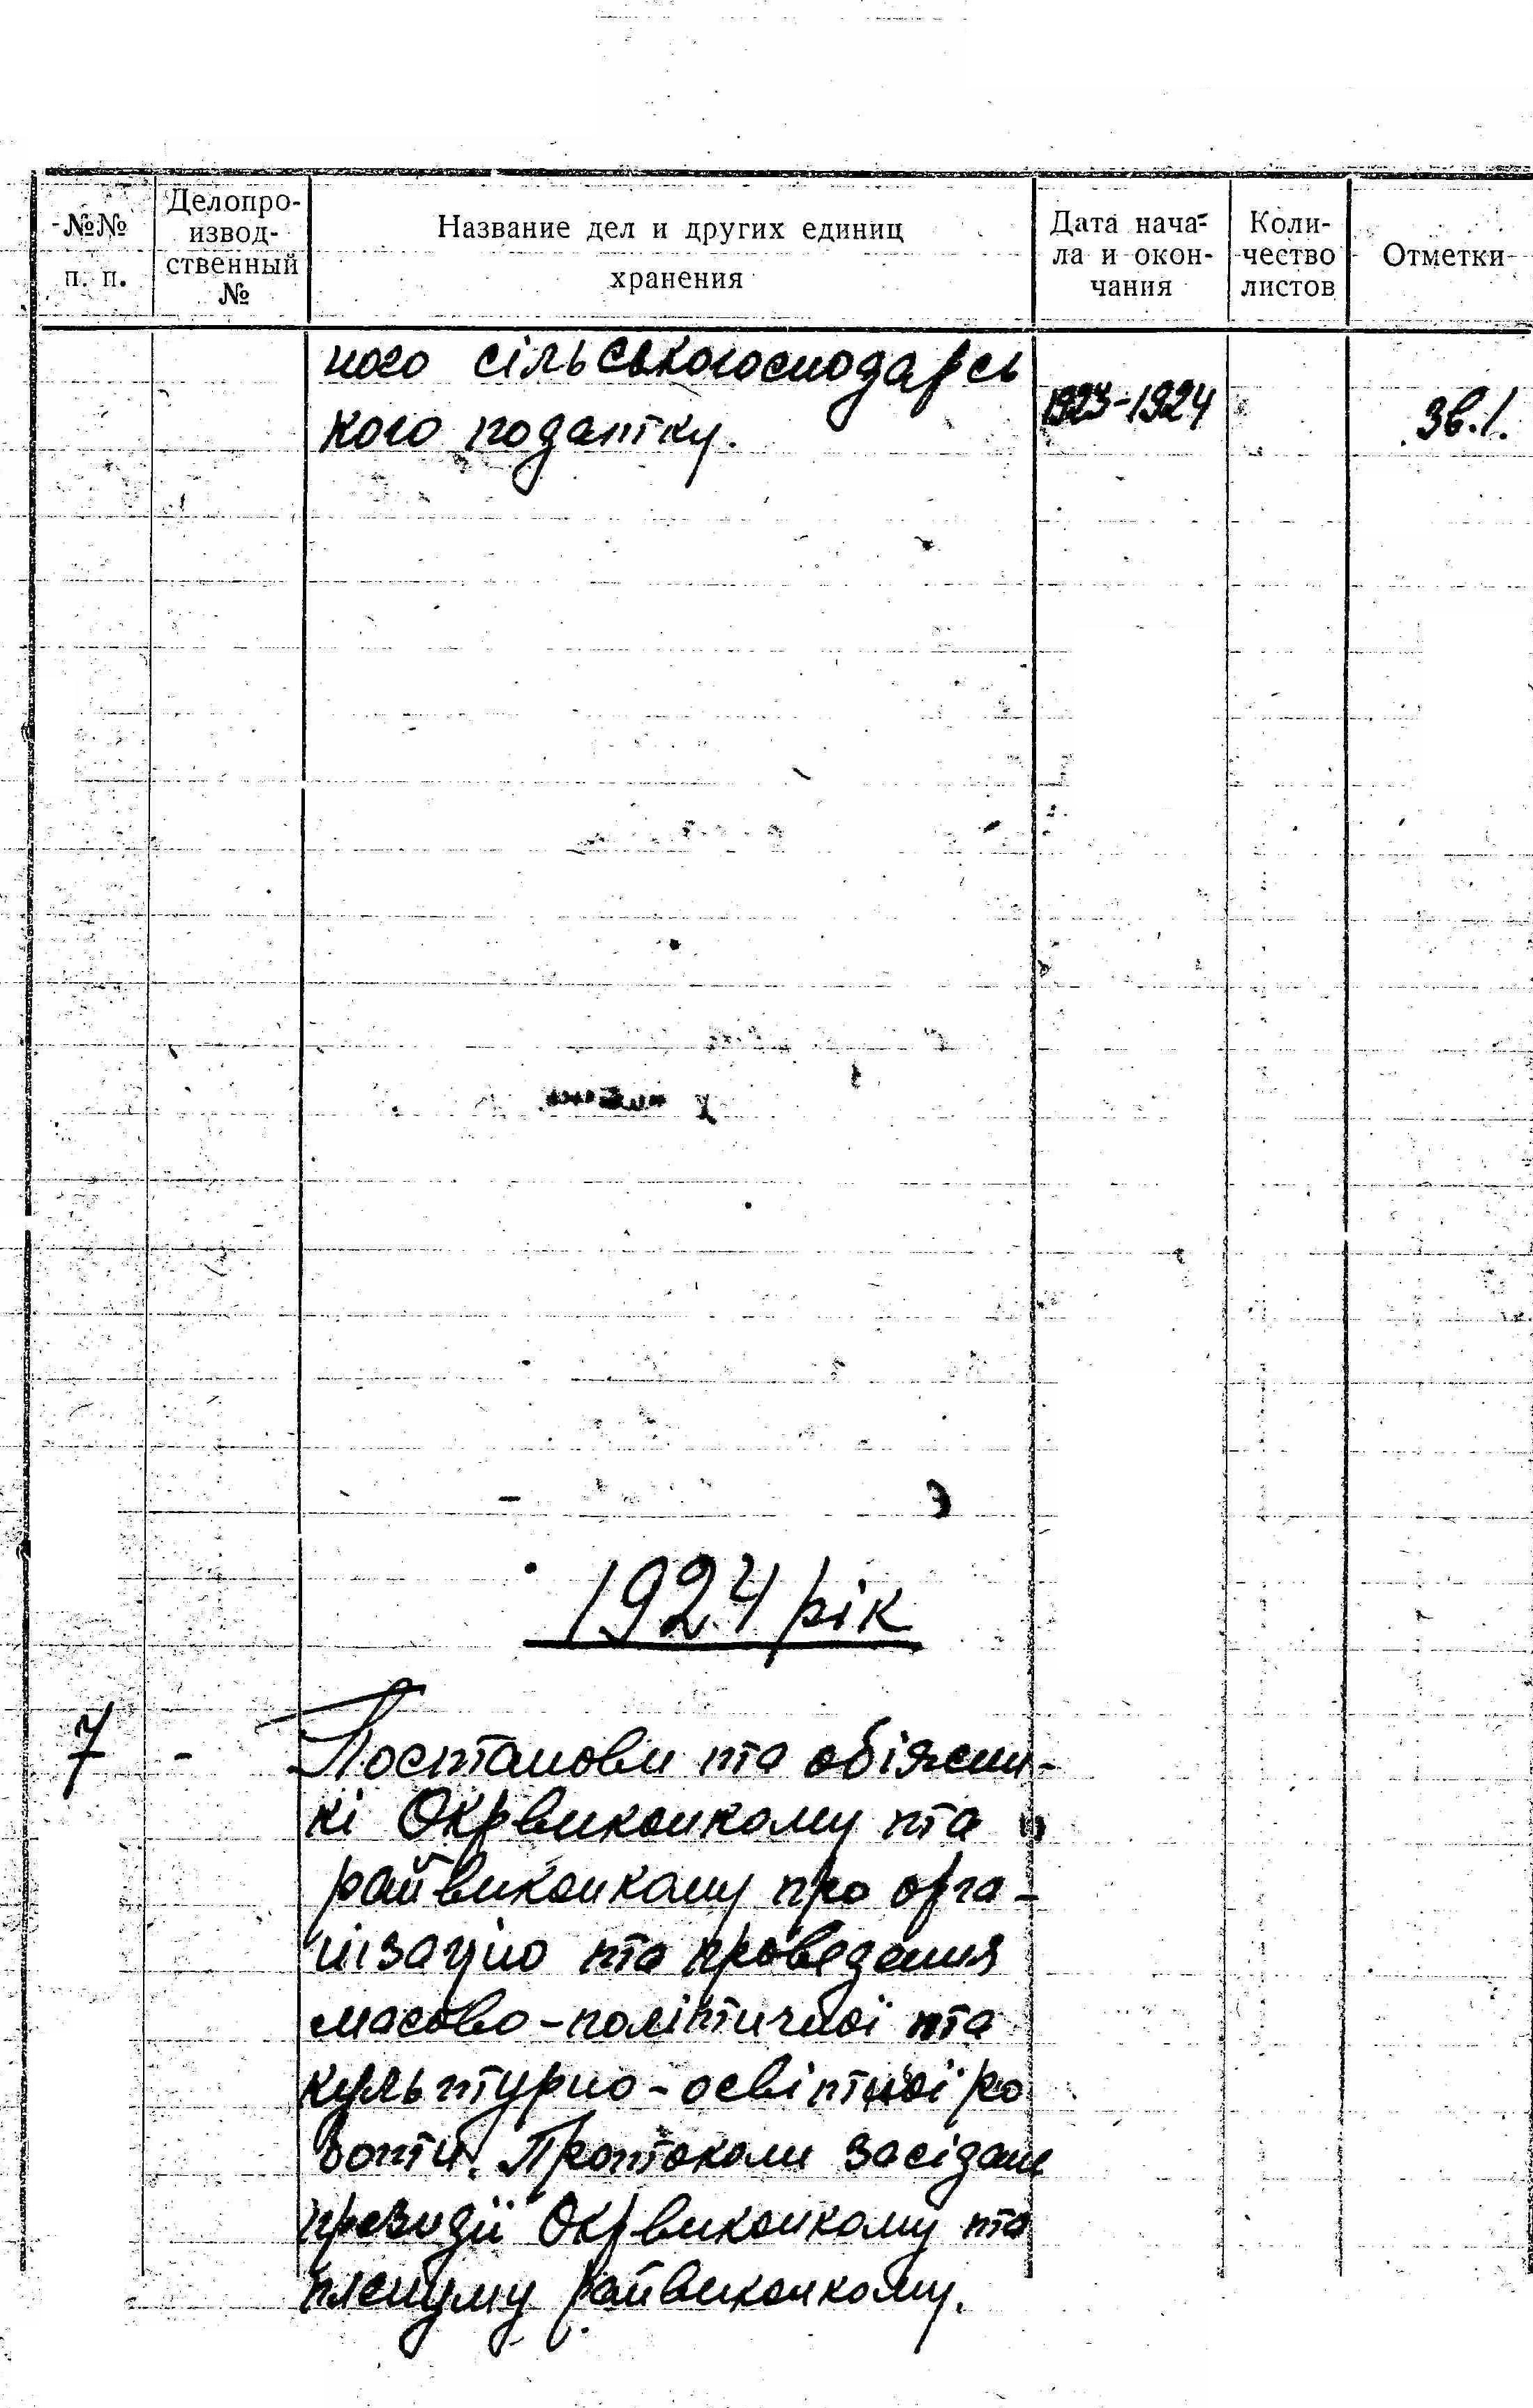 №№ п. п.
Делопро-
извод-
ственный
№
Название дел и других единиц
хранения
Дата нача-
ла и окон-
чания
Коли-
чество
листов
Отметки
ного сільськогосподарсь
кого податку.
1923-1924
Зв.1.
1924 рік
7 - Постанови та обіжни-
кі Окрвиконкому та
райвиконкому про орга-
нізацію та проведення
масово-політичної та
культурно-освітньої ро
боти. Протоколи засідань
президії Окрвиконкому та
пленуму райвиконкому.